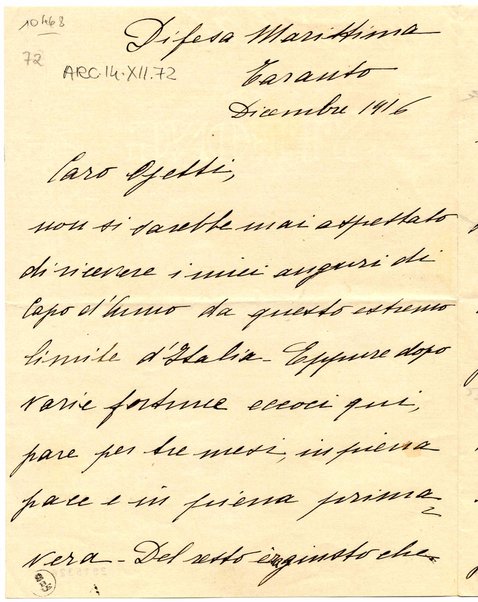 10468
72
ARC.14.XII.72
Difesa Marittima
Taranto
Dicembre 1916
Caro Ojetti,
non si sarebbe mai aspettato
di ricevere i miei auguri di
Capo d'Anno da questo estremo
limite d'Italia - Eppure dopo
varie fortune eccoci qui,
pare per tre mesi, in piena
pace e in piena prima=
vera - Del resto è giusto che